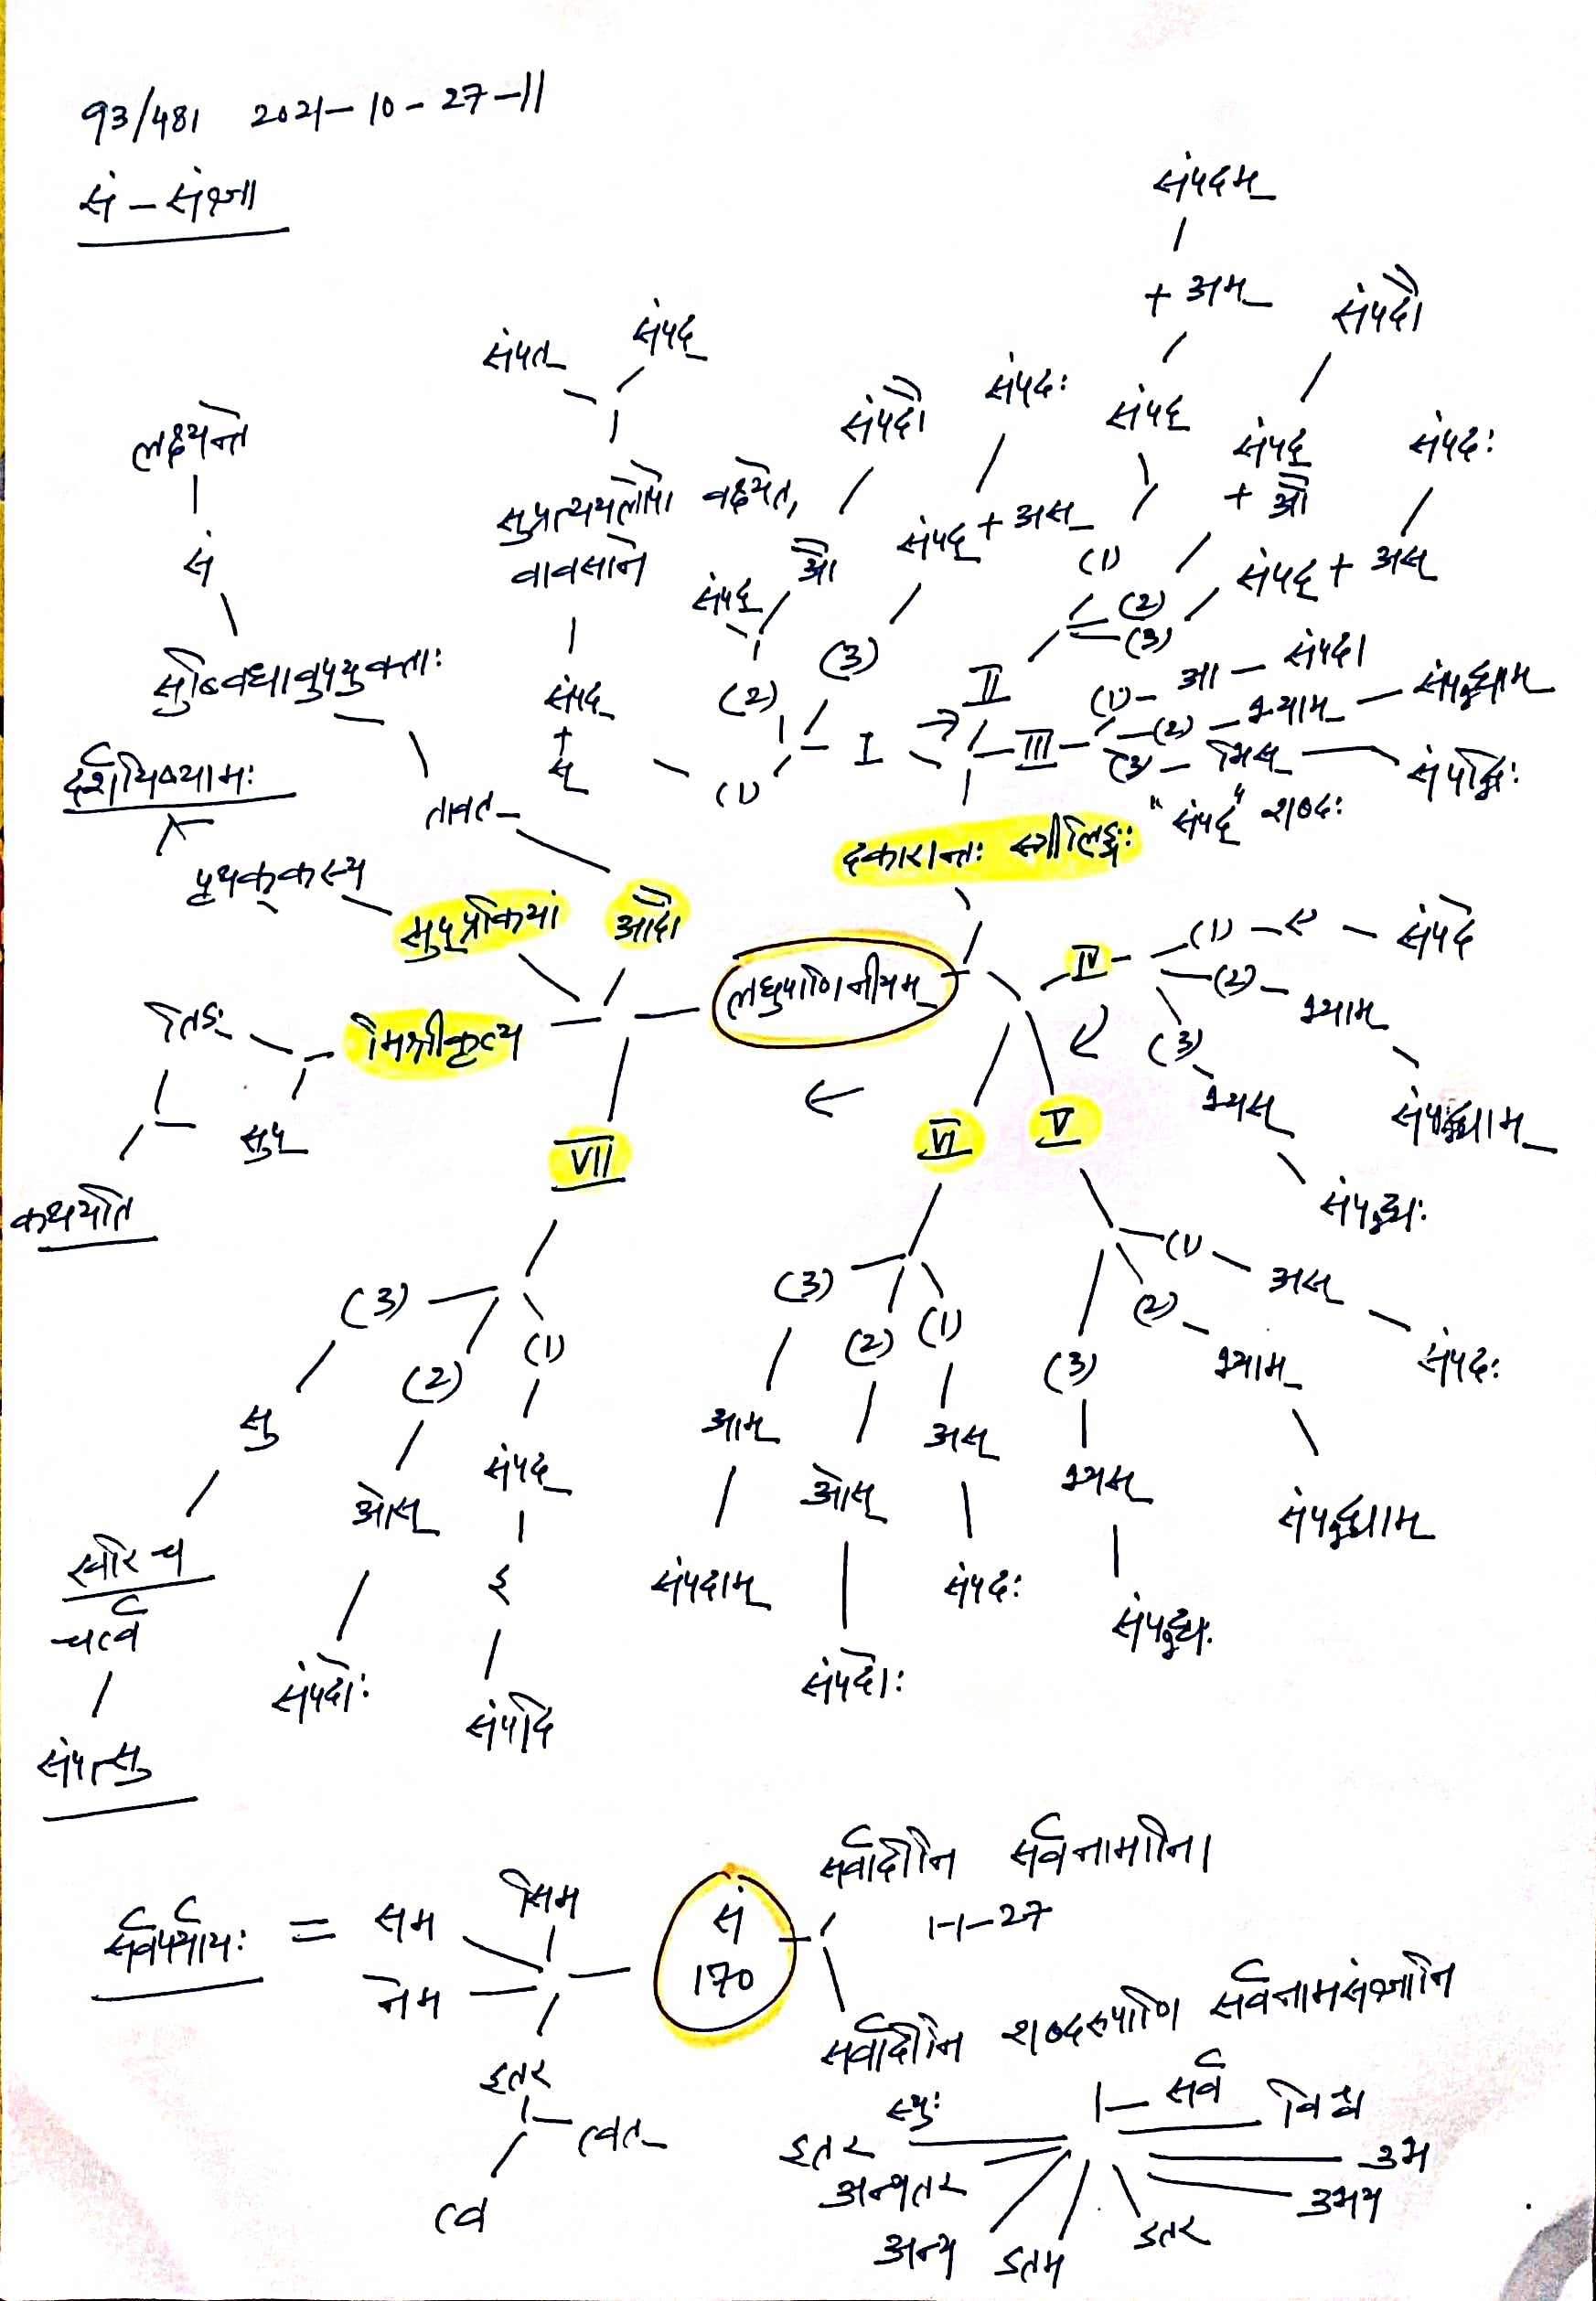 93/481 2021-10-27-11
सं - संज्ञा
संपदम्
+ अम्
संपदौ
संपत्
संपद्
संपदौ
संपदः
संपद्
संपद्
+ औ
संपदः
लक्ष्यन्ते
सं
सुब्विधावुपयुक्ताः
सुप्रत्ययलोपो वक्ष्यते,
वावसाने
संपद्
औ
संपद् + अस्
(1)
(2)
(3)
संपद् + अस्
संपद्
+
स्
(1)
(2)
(3)
I
II
III
(1) - आ - संपदा
(2) - भ्याम् - संपद्भ्याम्
(3) - भिस् - संपद्भिः
"संपद्" शब्दः
दर्शयिष्यामः
तावत्
पृथक्कस्य
सुप्प्रक्रियां
आदौ
दकारान्तः स्त्रीलिङ्गः
लघुपाणिनीयम्
IV
(1) - ए - संपदे
(2) - भ्याम्
संपद्भ्याम्
(3)
भ्यस्
संपद्भ्यः
तिङः
मिश्रीकृत्य
सुप्
कथयति
VII
VI
V
(3)
(2)
(1)
सु
ओस्
संपद्
इ
खरि च
चर्त्वे
संपत्सु
संपदोः
संपदि
(3)
(2)
(1)
आम्
ओस्
अस्
संपदाम्
संपदोः
संपदः
(1)
अस्
संपदः
(2)
भ्याम्
संपद्भ्याम्
(3)
भ्यस्
संपद्भ्यः
सर्वादीनि सर्वनामानि।
1-1-27
सर्वपर्यायः = सम
सिम
नेम
सं
170
इतर
त्वत्
त्व
सर्वादीनि शब्दरूपाणि सर्वनामसंज्ञानि
स्युः
1- सर्व
विश्व
उभ
उभय
डतर
डतम
अन्य
अन्यतर
इतर